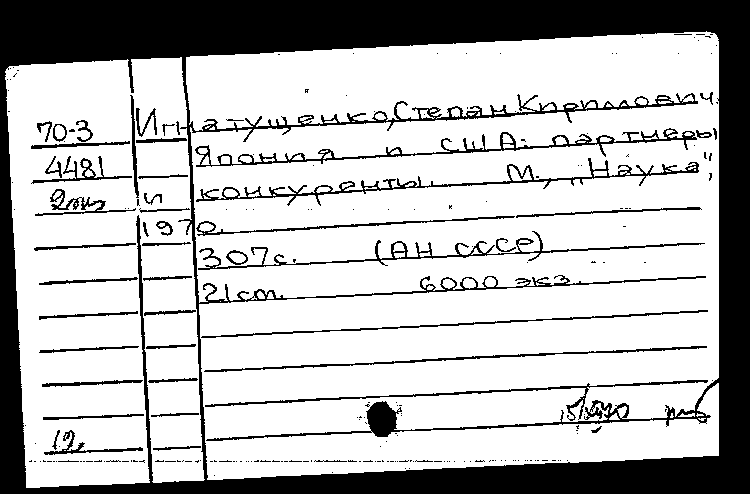 70-3 Игнатущенко, Степан Кириллович.
4481 Япония и США: партнеры
2 и конкуренты. М., „Наука",
1970.
307с. (АН СССР)
21ст. 6000 экз.
12.